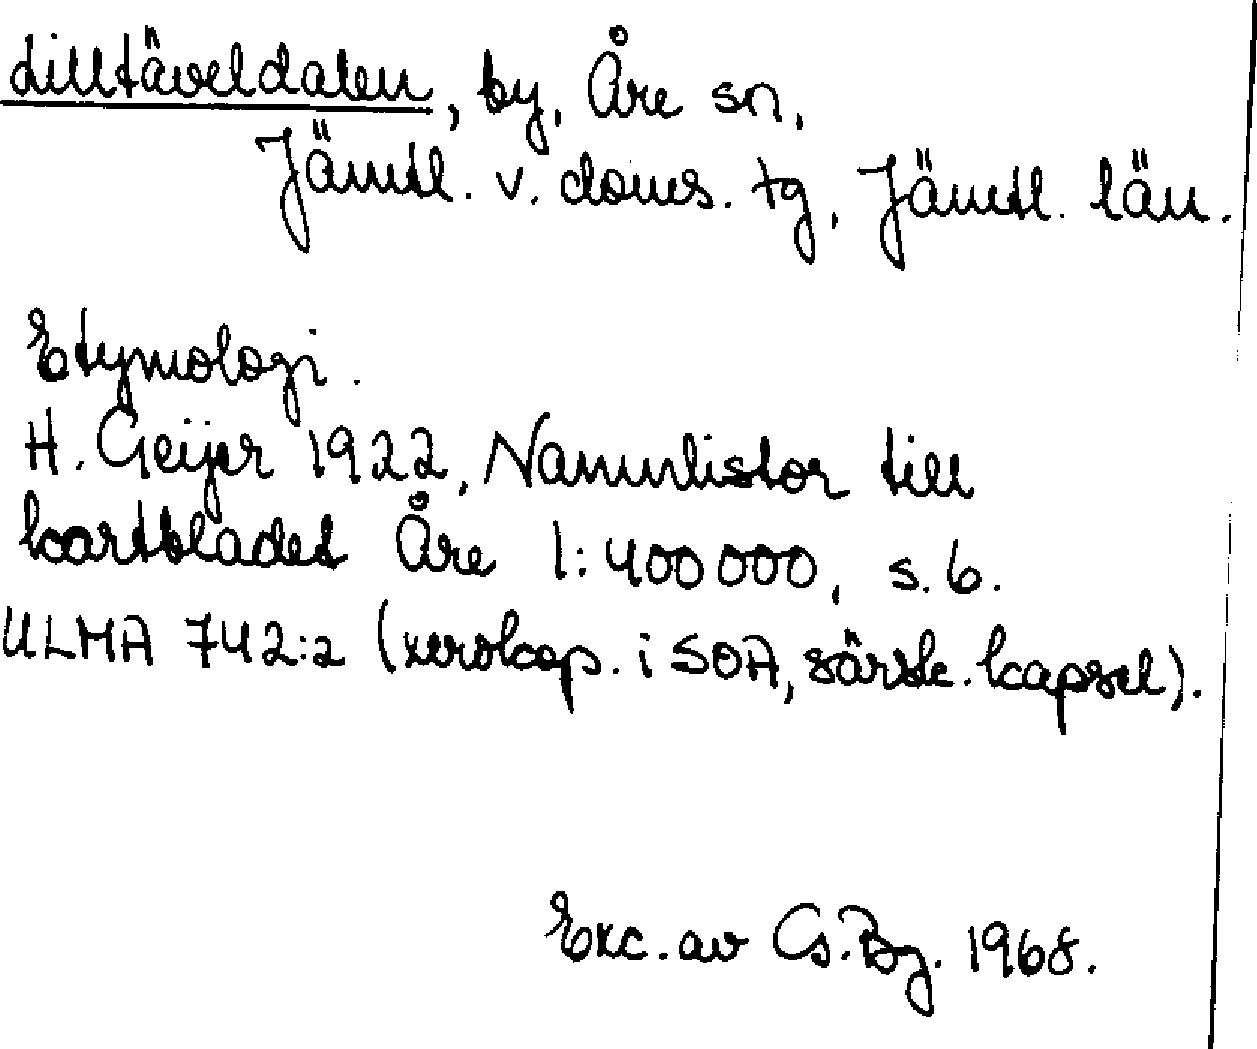 Lilltäveldalen, by, Åre sn,
Jämtl. v. doms. tg, Jämtl. län.
Etymologi.
H. Geijer 1922, Namnlistor till
kartbladet Åre 1:400000, s. 6.
ULMA 742:2 (xerokop. i SOA, särsk. kapsel).
Exc. av Cs. Bg. 1968.